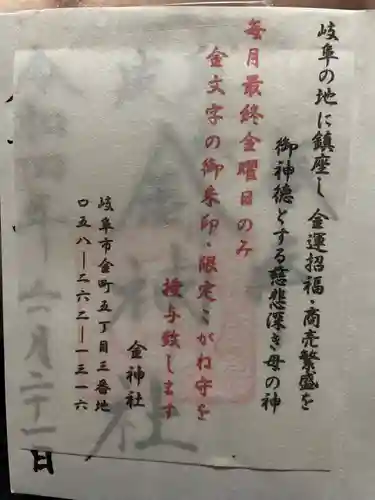 岐阜の地に鎮座し 金運招福・商売繁盛を
御神徳とする慈悲深き母の神
毎月最終金曜日のみ
金文字の御朱印・限定こがね守を
授与致します
金神社
岐阜市金町五丁目三番地
〇五八ー二六二ー一三一六
金神社
令和四年 六月二十一日